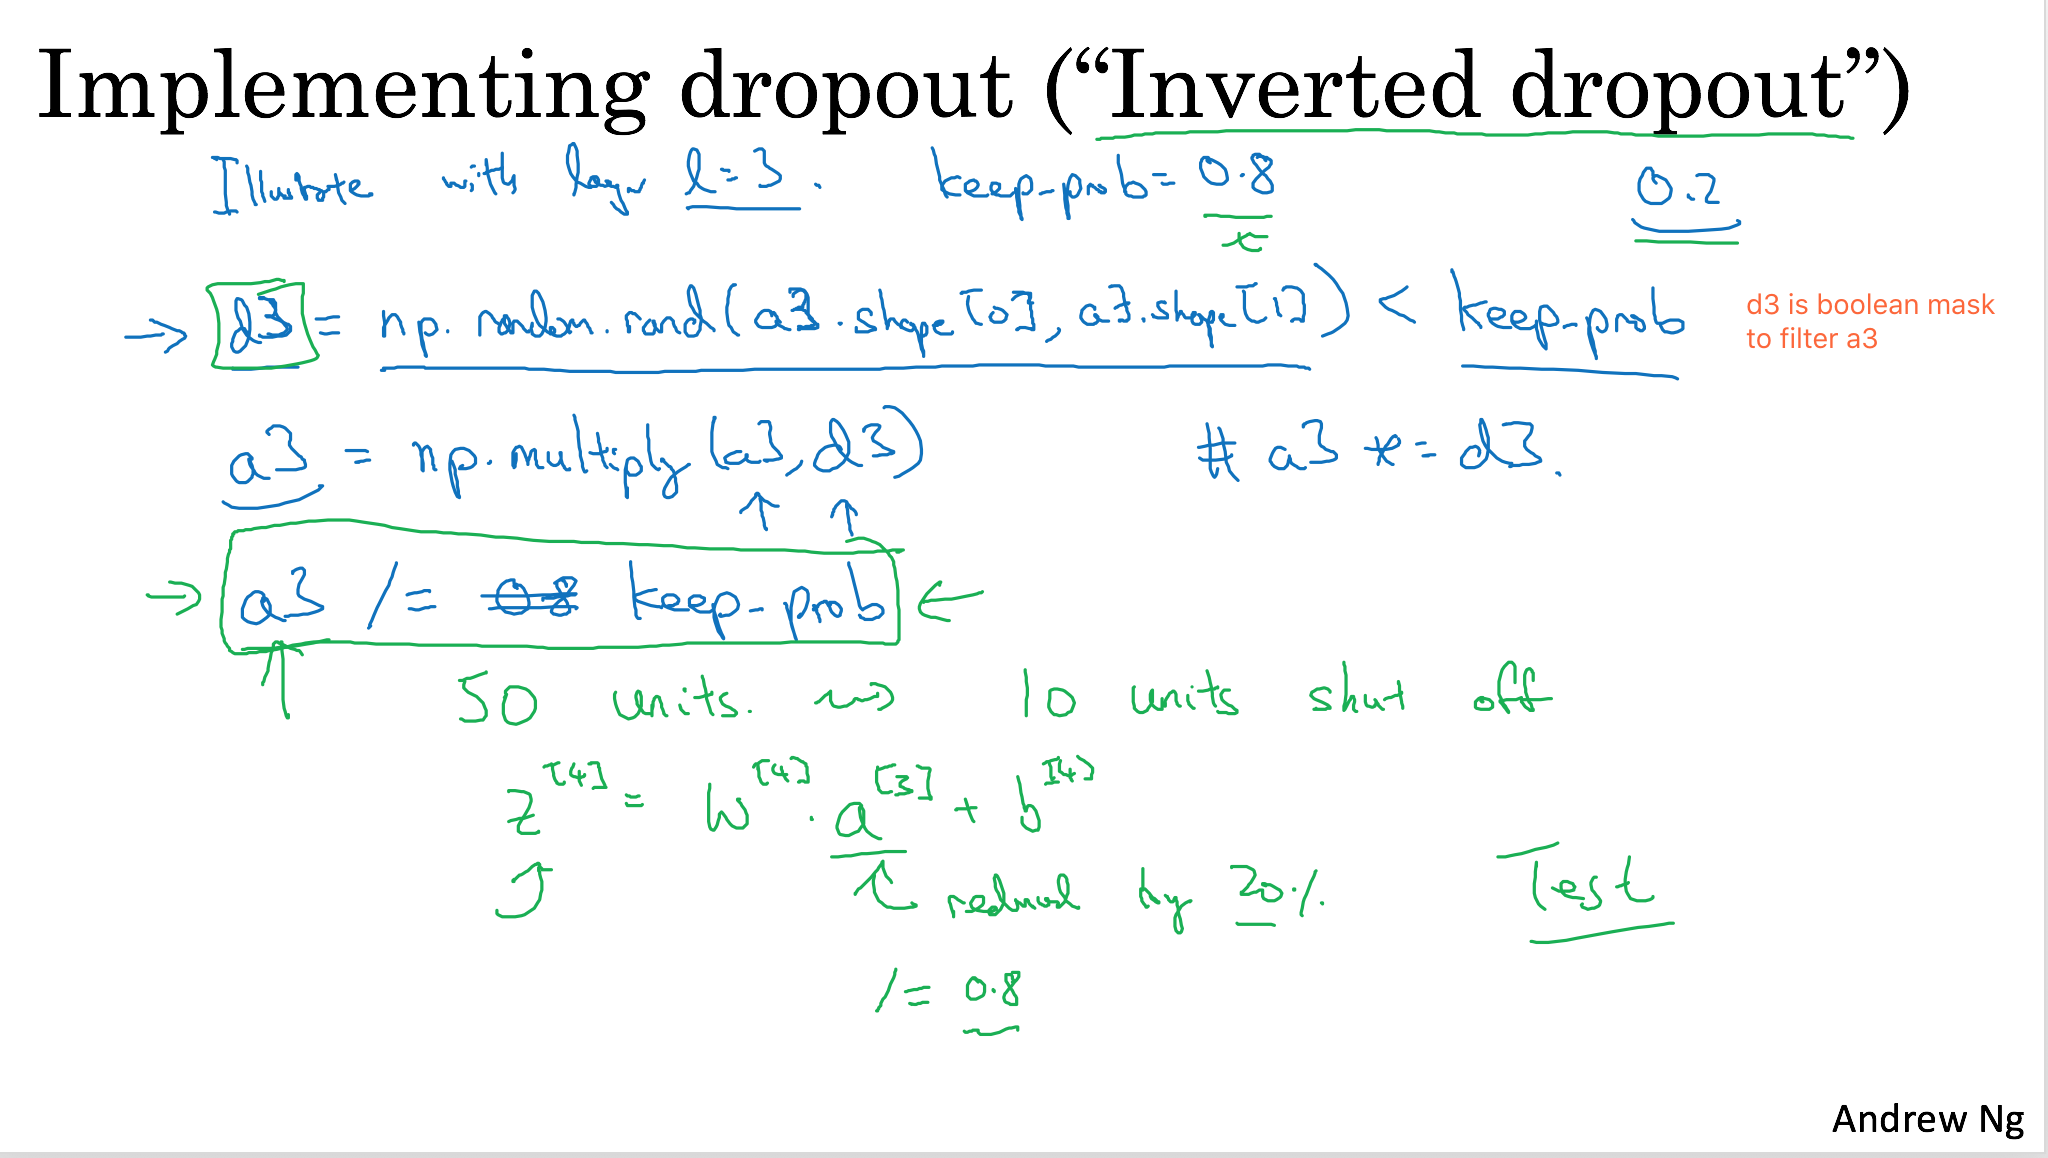 Implementing dropout (“Inverted dropout”)
Illustrate with layer l=3. keep-prob= 0.8 0.2
x
→ d3 = np.random.rand(a3.shape[0], a3.shape[1]) < keep-prob
d3 is boolean mask
to filter a3
a3 = np.multiply(a3, d3) # a3 *= d3.
↑ ↑
→ a3 /= 0.8 keep-prob ←
50 units. ⇝ 10 units shut off
z[4] = W[4] · a[3] + b[4]
reduced by 20%
Test
/= 0.8
Andrew Ng